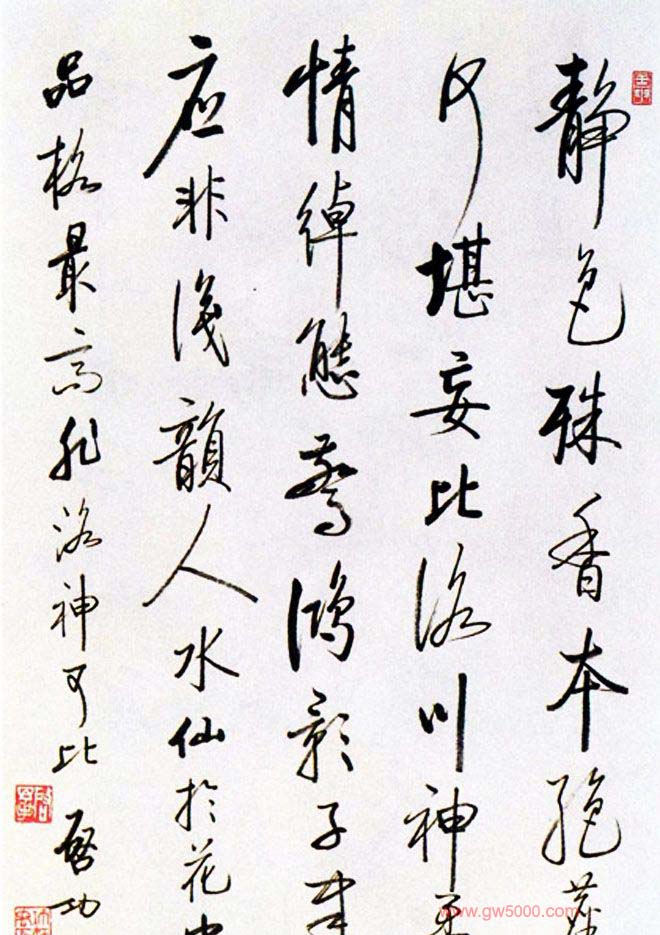 静色殊香本绝
何堪妄比洛川神柔
情绰态惊鸿影子建
应非浅韵人水仙於花中
品格最高非洛神可比 启功
www.gw5000.com